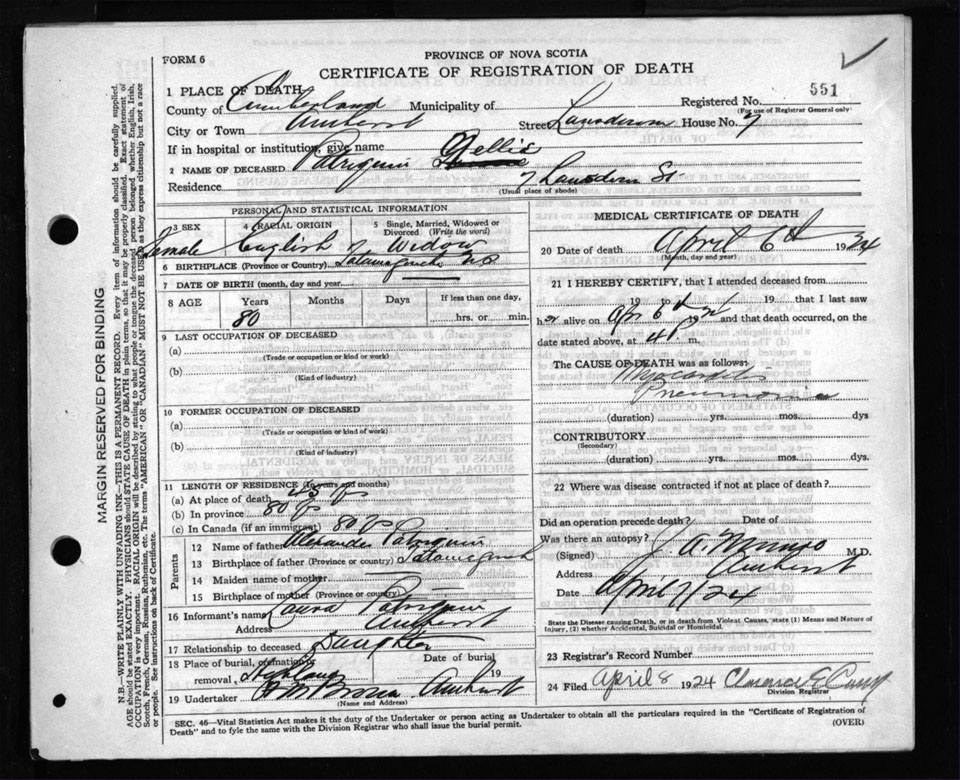 PROVINCE OF NOVA SCOTIA
FORM 6
CERTIFICATE OF REGISTRATION OF DEATH
1 PLACE OF DEATH
County of Cumberland Municipality of Registered No. 551
(For use of Registrar General only)
City or Town Amherst Street Lansdowne House No. 7
If in hospital or institution, give name
2 NAME OF DECEASED Patriquin Nellie
Residence 7 Lansdown St.
(Usual place of abode)
PERSONAL AND STATISTICAL INFORMATION
3 SEX Female
4 RACIAL ORIGIN English
5 Single, Married, Widowed or Divorced (Write the word) Widow
6 BIRTHPLACE (Province or Country) Tatamagouche N.S.
7 DATE OF BIRTH (month, day and year)
8 AGE Years 80 Months Days If less than one day, hrs. or min.
9 LAST OCCUPATION OF DECEASED
(a)
(Trade or occupation or kind or work)
(b)
(Kind of industry)
10 FORMER OCCUPATION OF DECEASED
(a)
(Trade or occupation or kind of work)
(b)
(Kind of industry)
11 LENGTH OF RESIDENCE (In years and months)
(a) At place of death 45 yrs
(b) In province 80 yrs
(c) In Canada (if an immigrant) 80 yrs
Parents
12 Name of father Alexander Patriquin
13 Birthplace of father (Province or country) Tatamagouch
14 Maiden name of mother
15 Birthplace of mother (Province or Country)
16 Informant's name Laura Patriquin
Address Amherst
17 Relationship to deceased Daughter
18 Place of burial, cremation, Date of burial
removal, 19
19 Undertaker Brown Amherst
(Name and Address)
MEDICAL CERTIFICATE OF DEATH
20 Date of death April 6th 1924
(Month, day and year)
21 I HEREBY CERTIFY, that I attended deceased from
19 to 19 that I last saw
her alive on Apr 6th 1924 and that death occurred, on
date stated above, at 4 m.
The CAUSE OF DEATH was as follows:
Myocarditis
Pneumonia
(duration) yrs. mos. dys
CONTRIBUTORY
(Secondary)
(duration) yrs. mos. dys.
22 Where was disease contracted if not at place of death?
Did an operation precede death? Date of
Was there an autopsy?
(Signed) J. A. Munro M.D.
Address Amherst
Date April 7/24
State the Disease causing Death, or in death from Violent Causes, state (1) Means and Nature of
Injury, (2) whether Accidental, Suicidal or Homicidal.
23 Registrar's Record Number
24 Filed April 8 1924 Clarence E
Division Registrar
SEC. 46—Vital Statistics Act makes it the duty of the Undertaker or person acting as Undertaker to obtain all the particulars required in the "Certificate of Registration of
Death" and to fyle the same with the Division Registrar who shall issue the burial permit.
(OVER)
MARGIN RESERVED FOR BINDING
N.B.—WRITE PLAINLY WITH UNFADING INK—THIS IS A PERMANENT RECORD. Every item of information should be carefully supplied.
AGE should be stated EXACTLY. PHYSICIANS should STATE CAUSE OF DEATH in plain terms, so that it may be properly classified. Exact statement of
OCCUPATION is very important. RACIAL ORIGIN will be described by stating to what people or tongue the deceased person belonged whether English, Irish,
Scotch, French, German, Russian, Ruthenian, etc. The terms "AMERICAN" or "CANADIAN" MUST NOT BE USED as they express citizenship but not a race
or people. See instructions on back of Certificate.